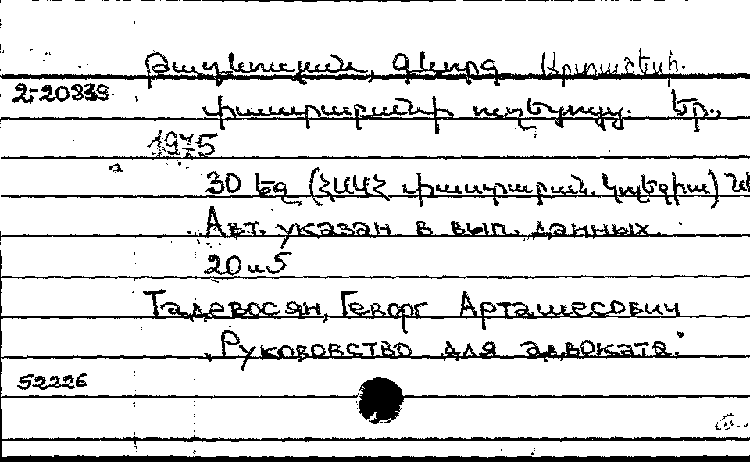 Թադևոսյան, Գևորգ Արտաշեսի.
2-20339
փաստաբանի ուղեցույց. Եր.,
1975
30 էջ (ՀՍՍՀ փաստաբան. կոլեգիա)
Авт. указан в вып. данных.
20 ս 5
Тадевосян, Геворг Арташесович
"Руководство для адвоката."
52226